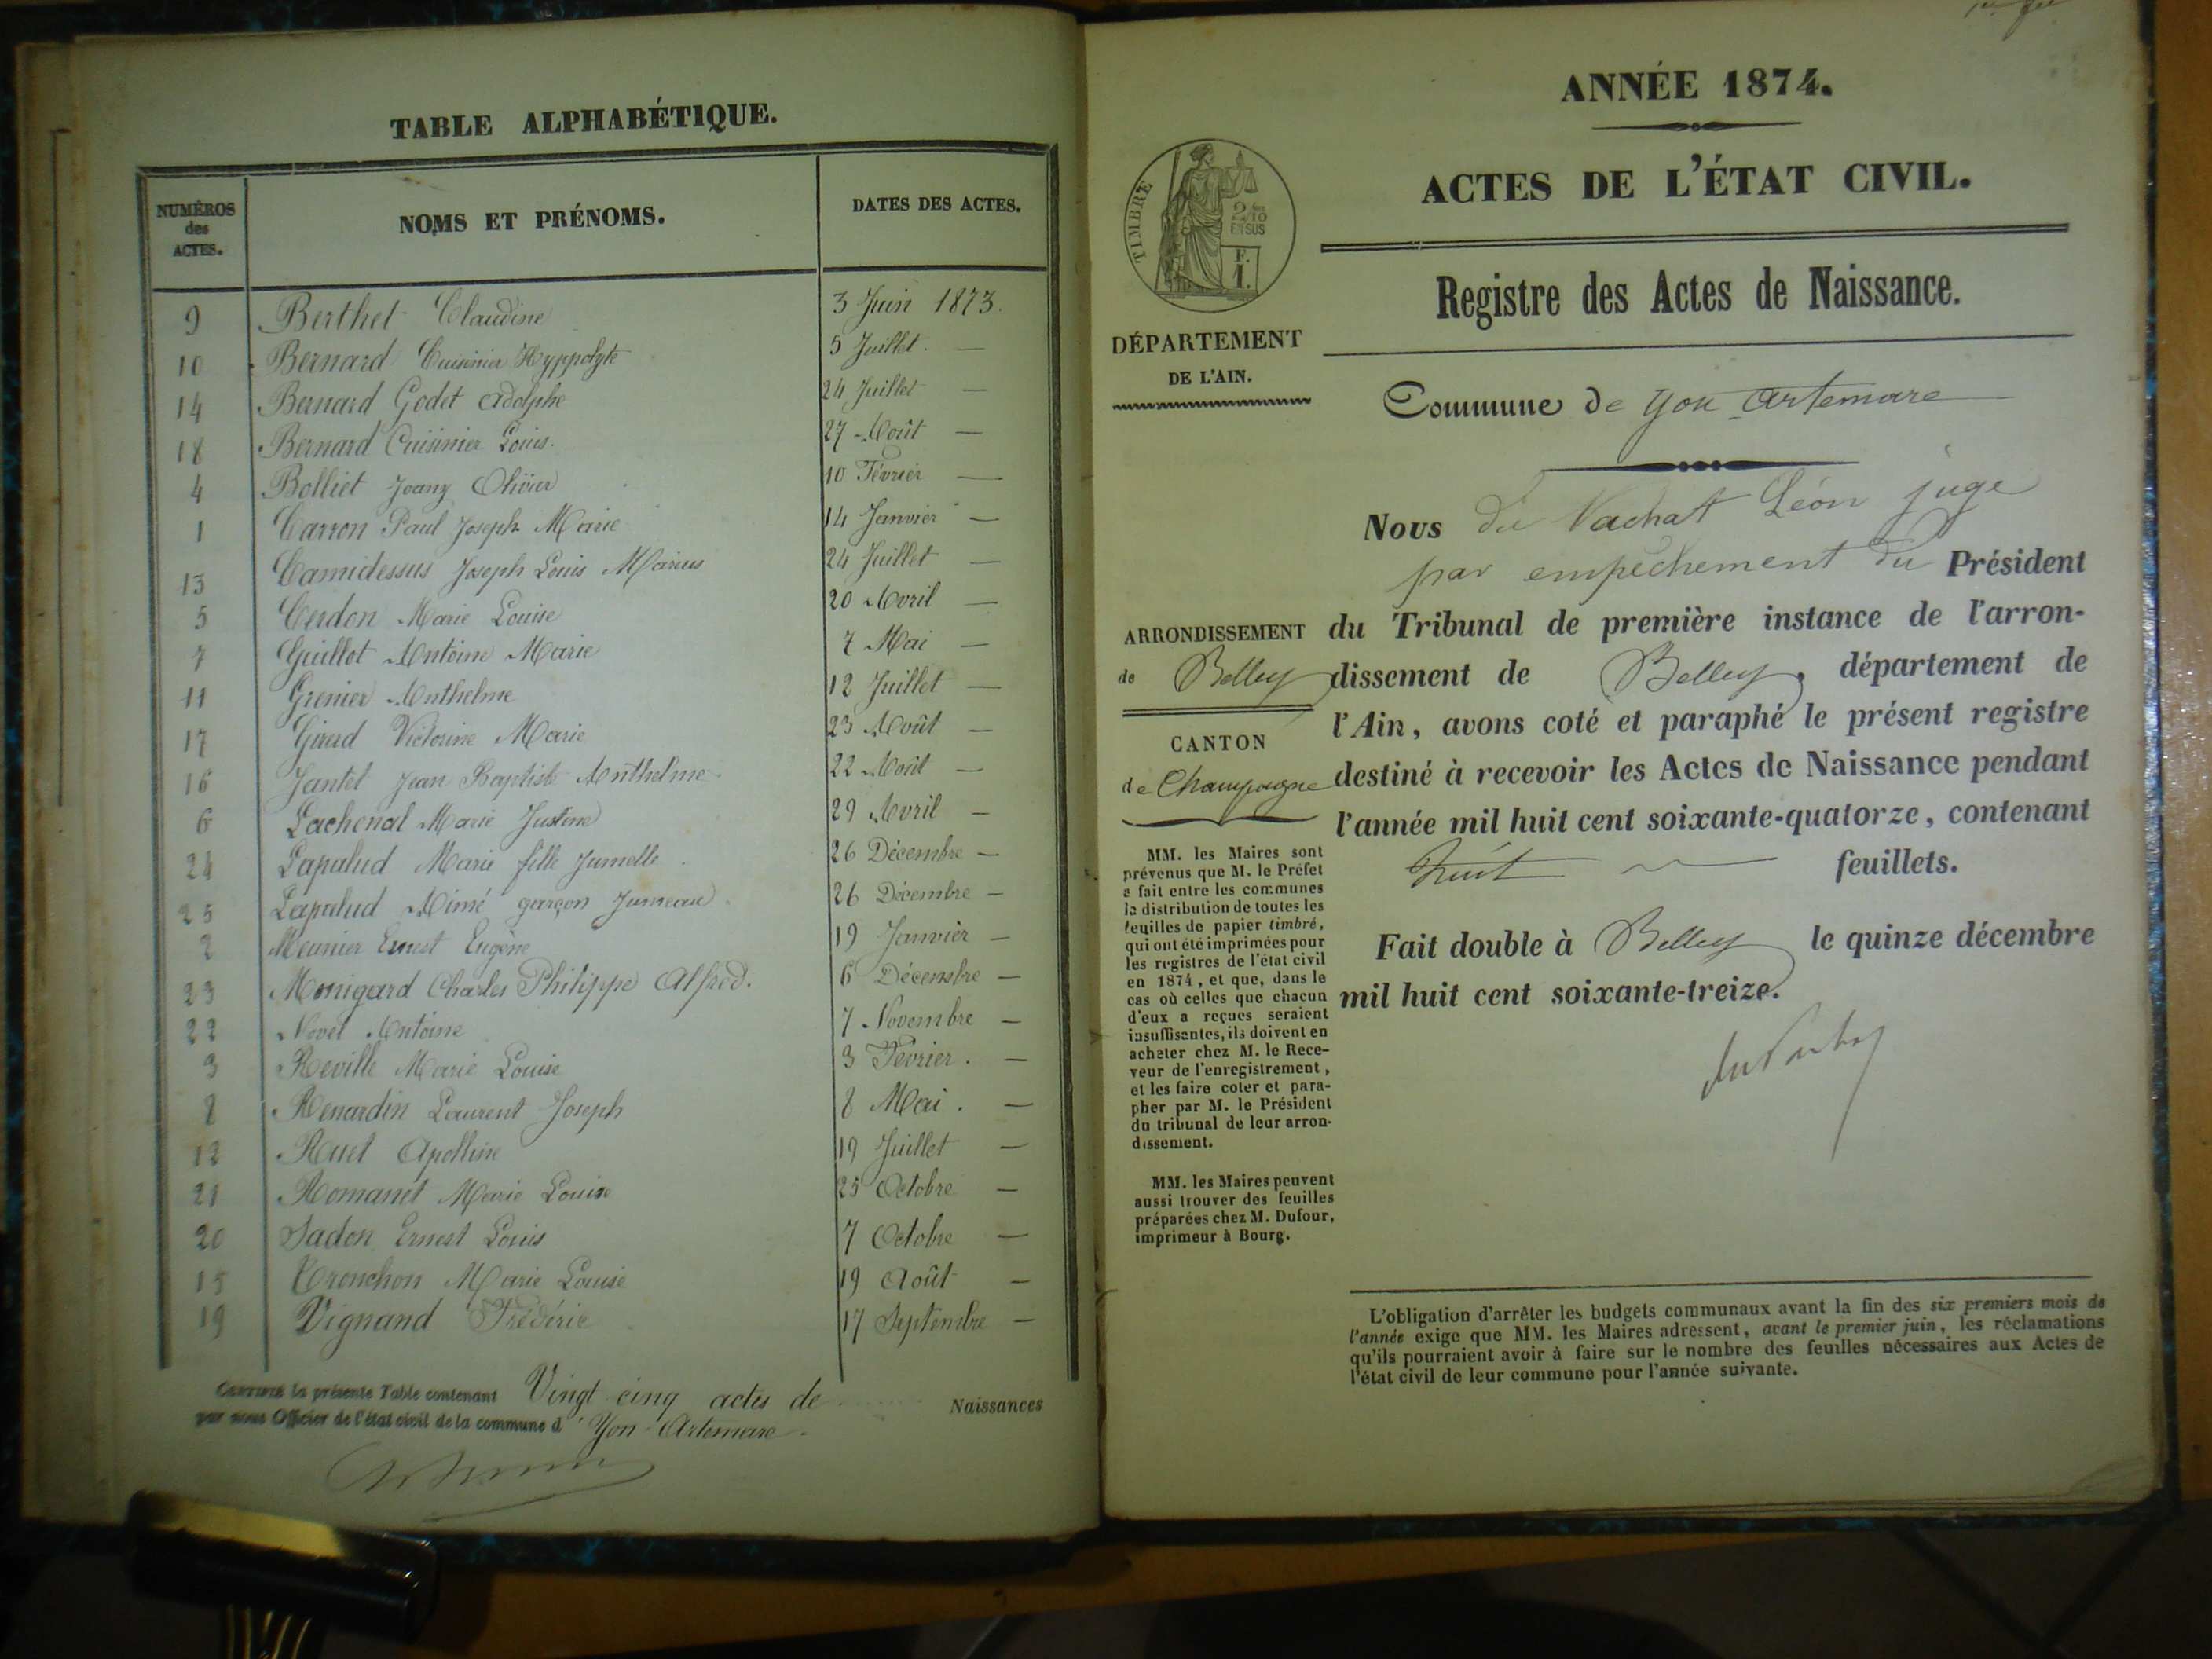 TABLE ALPHABÉTIQUE.
NUMÉROS des ACTES.
NOMS ET PRÉNOMS.
DATES DES ACTES.
9 Berthet Claudine 3 Juin 1873.
10 Bernard Cuisinier Hyppolyte 5 Juillet. —
14 Bernard Godet Adolphe 24 Juillet —
18 Bernard Cuisinier Louis. 27 Août —
4 Bolliet Joany Olivier 10 Février —
1 Carron Paul Joseph Marie 14 Janvier —
13 Camidessus Joseph Louis Marius 24 Juillet —
5 Cerdon Marie Louise 20 Avril —
7 Guillot Antoine Marie 7 Mai —
11 Grenier Anthelme 12 Juillet —
17 Girerd Victorine Marie 23 Août —
16 Jantet Jean Baptiste Anthelme 22 Août —
6 Lachenal Marie Justine 29 Avril —
24 Lapalud Marie fille Jumelle 26 Décembre —
25 Lapalud Aimé garçon Jumeau 26 Décembre —
2 Meunier Ernest Eugène 19 Janvier —
23 Monigard Charles Philippe Alfred. 6 Décembre —
22 Novet Antoine 7 Novembre —
3 Reville Marie Louise 3 Février. —
8 Renardin Laurent Joseph 8 Mai. —
12 Ruet Apolline 19 Juillet —
21 Romanet Marie Louise 25 Octobre —
20 Sadon Ernest Louis 7 Octobre —
15 Tronchon Marie Louise 19 Août —
19 Vignand Frédéric 17 Septembre —
CERTIFIÉ la présente Table contenant Vingt cinq actes de Naissances
par nous Officier de l'état civil de la commune d' Yon-Artemare.
ANNÉE 1874.
ACTES DE L'ÉTAT CIVIL.
Registre des Actes de Naissance.
TIMBRE
2/10
EN SUS
F.
1.
DÉPARTEMENT
DE L'AIN.
Commune de Yon Artemare
Nous du Vachat Léon juge
par empêchement du Président
du Tribunal de première instance de l'arron-
dissement de Belley, département de
l'Ain, avons coté et paraphé le présent registre
destiné à recevoir les Actes de Naissance pendant
l'année mil huit cent soixante-quatorze, contenant
huit feuillets.
Fait double à Belley le quinze décembre
mil huit cent soixante-treize.
du Vachat
ARRONDISSEMENT
de Belley
CANTON
de Champagne
MM. les Maires sont
prévenus que M. le Préfet
a fait entre les communes
la distribution de toutes les
feuilles de papier timbré,
qui ont été imprimées pour
les registres de l'état civil
en 1874, et que, dans le
cas où celles que chacun
d'eux a reçues seraient
insuffisantes, ils doivent en
acheter chez M. le Rece-
veur de l'enregistrement,
et les faire coter et para-
pher par M. le Président
du tribunal de leur arron-
dissement.
MM. les Maires peuvent
aussi trouver des feuilles
préparées chez M. Dufour,
imprimeur à Bourg.
L'obligation d'arrêter les budgets communaux avant la fin des six premiers mois de
l'année exige que MM. les Maires adressent, avant le premier juin, les réclamations
qu'ils pourraient avoir à faire sur le nombre des feuilles nécessaires aux Actes de
l'état civil de leur commune pour l'année suivante.